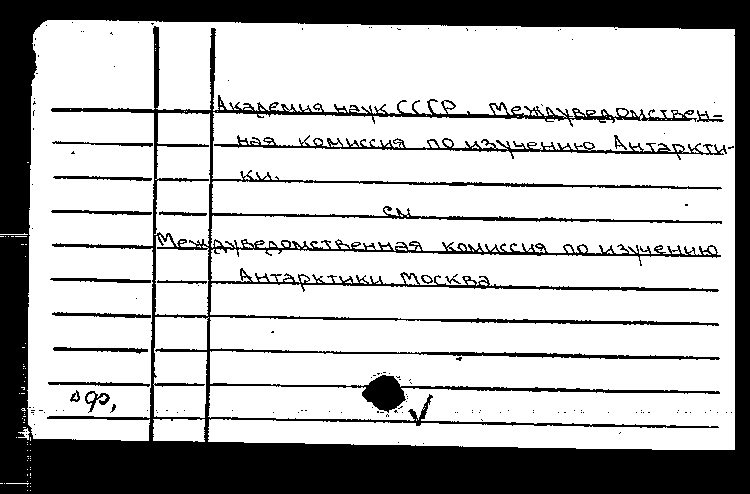 Академия наук СССР. Междуведомствен=
ная комиссия по изучению Антаркти-
ки.
см
Междуведомственная комиссия по изучению
Антарктики. Москва.